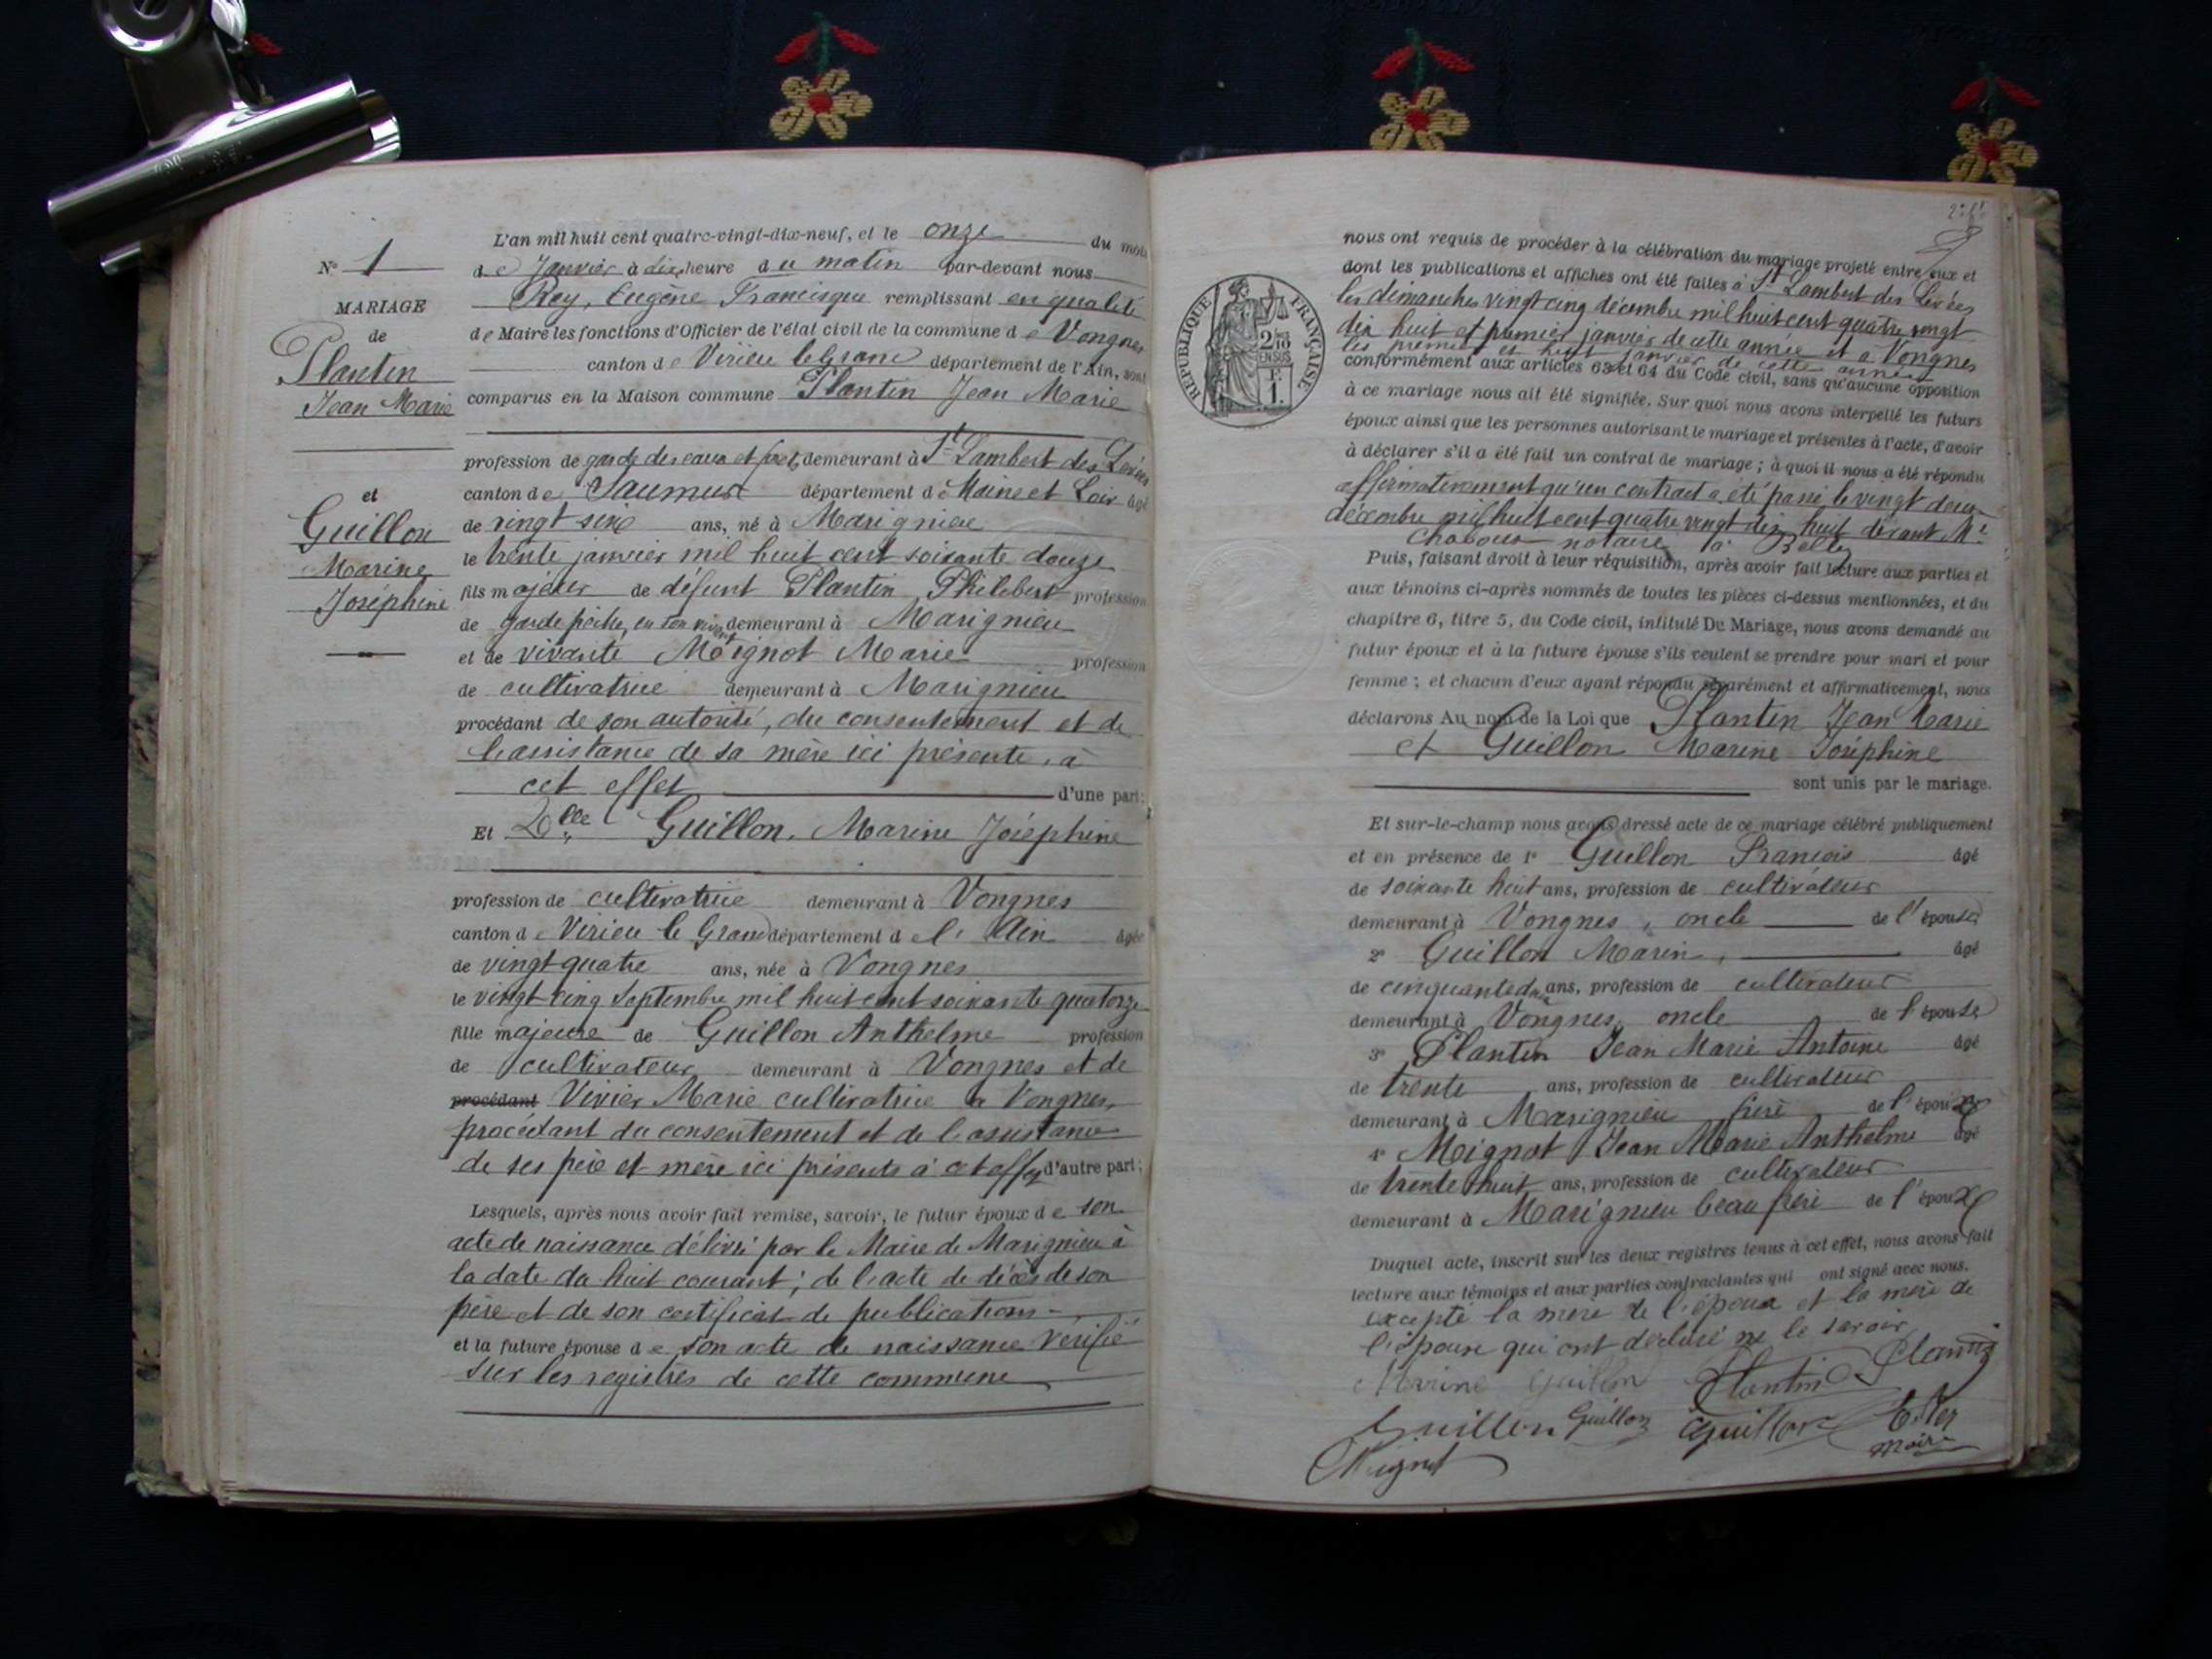 N° 1
MARIAGE
de
Plantin
Jean Marie
et
Guillon
Marine
Joséphine
L'an mil huit cent quatre-vingt-dix-neuf, et le onze du mois
de Janvier à dix heure du matin par-devant nous
Rey, Eugène Francisque remplissant en qualité
de Maire les fonctions d'Officier de l'état civil de la commune de Vongnes
canton de Virieu le Grand département de l'Ain, sont
comparus en la Maison commune Plantin Jean Marie
profession de garde des eaux et forêts demeurant à St Lambert des Levées
canton de Saumur département de Maine et Loir âgé
de vingt six ans, né à Marignieu
le trente janvier mil huit cent soixante douze
fils majeur de défunt Plantin Philebert profession
de garde pêche, en son vivant demeurant à Marignieu
et de vivante Meignot Marie profession
de cultivatrice demeurant à Marignieu
procédant de son autorité, du consentement et de
l'assistance de sa mère ici présente, à
cet effet d'une part;
Et Dlle Guillon, Marine Joséphine
profession de cultivatrice demeurant à Vongnes
canton de Virieu le Grand département de l'Ain âgée
de vingt quatre ans, née à Vongnes
le vingt-cinq Septembre mil huit cent soixante quatorze
fille majeure de Guillon Anthelme profession
de cultivateur demeurant à Vongnes et de
procédant Vivier Marie cultivatrice à Vongnes,
procédant du consentement et de l'assistance
de ses père et mère ici présents à cet effet d'autre part;
Lesquels, après nous avoir fait remise, savoir, le futur époux de son
acte de naissance délivré par le Maire de Marignieu à
la date du huit courant; de l'acte de décès de son
père et de son certificat de publications
et la future épouse de son acte de naissance vérifié
sur les registres de cette commune
RÉPUBLIQUE FRANÇAISE
2/10 EN SUS
F. 1.
nous ont requis de procéder à la célébration du mariage projeté entre eux et
dont les publications et affiches ont été faites à St Lambert des Levées
les dimanches vingt cinq décembre mil huit cent quatre vingt
dix huit et premier janvier de cette année et à Vongnes
les premier et huit janvier de cette année
conformément aux articles 63 et 64 du Code civil, sans qu'aucune opposition
à ce mariage nous ait été signifiée. Sur quoi nous avons interpellé les futurs
époux ainsi que les personnes autorisant le mariage et présentes à l'acte, d'avoir
à déclarer s'il a été fait un contrat de mariage; à quoi il nous a été répondu
affirmativement qu'un contract a été passé le vingt deux
décembre mil huit cent quatre vingt dix huit devant Me
notaire à Belley
Puis, faisant droit à leur réquisition, après avoir fait lecture aux parties et
aux témoins ci-après nommés de toutes les pièces ci-dessus mentionnées, et du
chapitre 6, titre 5, du Code civil, intitulé Du Mariage, nous avons demandé au
futur époux et à la future épouse s'ils veulent se prendre pour mari et pour
femme; et chacun d'eux ayant répondu séparément et affirmativement, nous
déclarons Au nom de la Loi que Plantin Jean Marie
et Guillon Marine Joséphine
sont unis par le mariage.
Et sur-le-champ nous avons dressé acte de ce mariage célébré publiquement
et en présence de 1° Guillon François âgé
de soixante huit ans, profession de cultivateur
demeurant à Vongnes, oncle de l'épouse
2° Guillon Marin, âgé
de ans, profession de cultivateur
demeurant à Vongnes, oncle de l'épouse
3° Plantin Jean Marie Antoine âgé
de trente ans, profession de cultivateur
demeurant à Marignieu frère de l'époux
4° Meignot Jean Marie Anthelme âgé
de trente huit ans, profession de cultivateur
demeurant à Marignieu beau frère de l'époux
Duquel acte, inscrit sur les deux registres tenus à cet effet, nous avons fait
lecture aux témoins et aux parties contractantes qui ont signé avec nous.
excepté la mère de l'époux et la mère de
l'épouse qui ont déclaré ne le savoir
Marine Guillon Plantin Plantin
Guillon Guillon Guillon E. Rey
Meignot maire